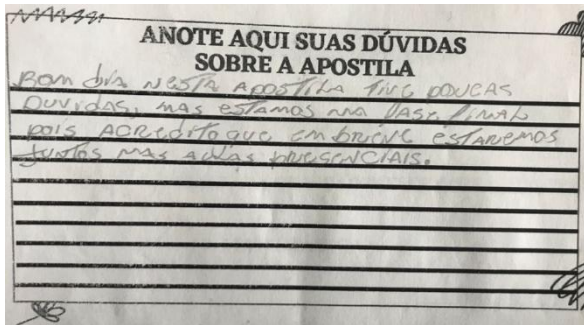 ANOTE AQUI SUAS DÚVIDAS
SOBRE A APOSTILA
BOM DIA NESTA APOSTILA TIVE POUCAS
DUVIDAS, MAS ESTAMOS NA FASE FINAL
POIS ACREDITO QUE EM BREVE ESTAREMOS
JUNTOS NAS AULAS PRESENCIAIS.